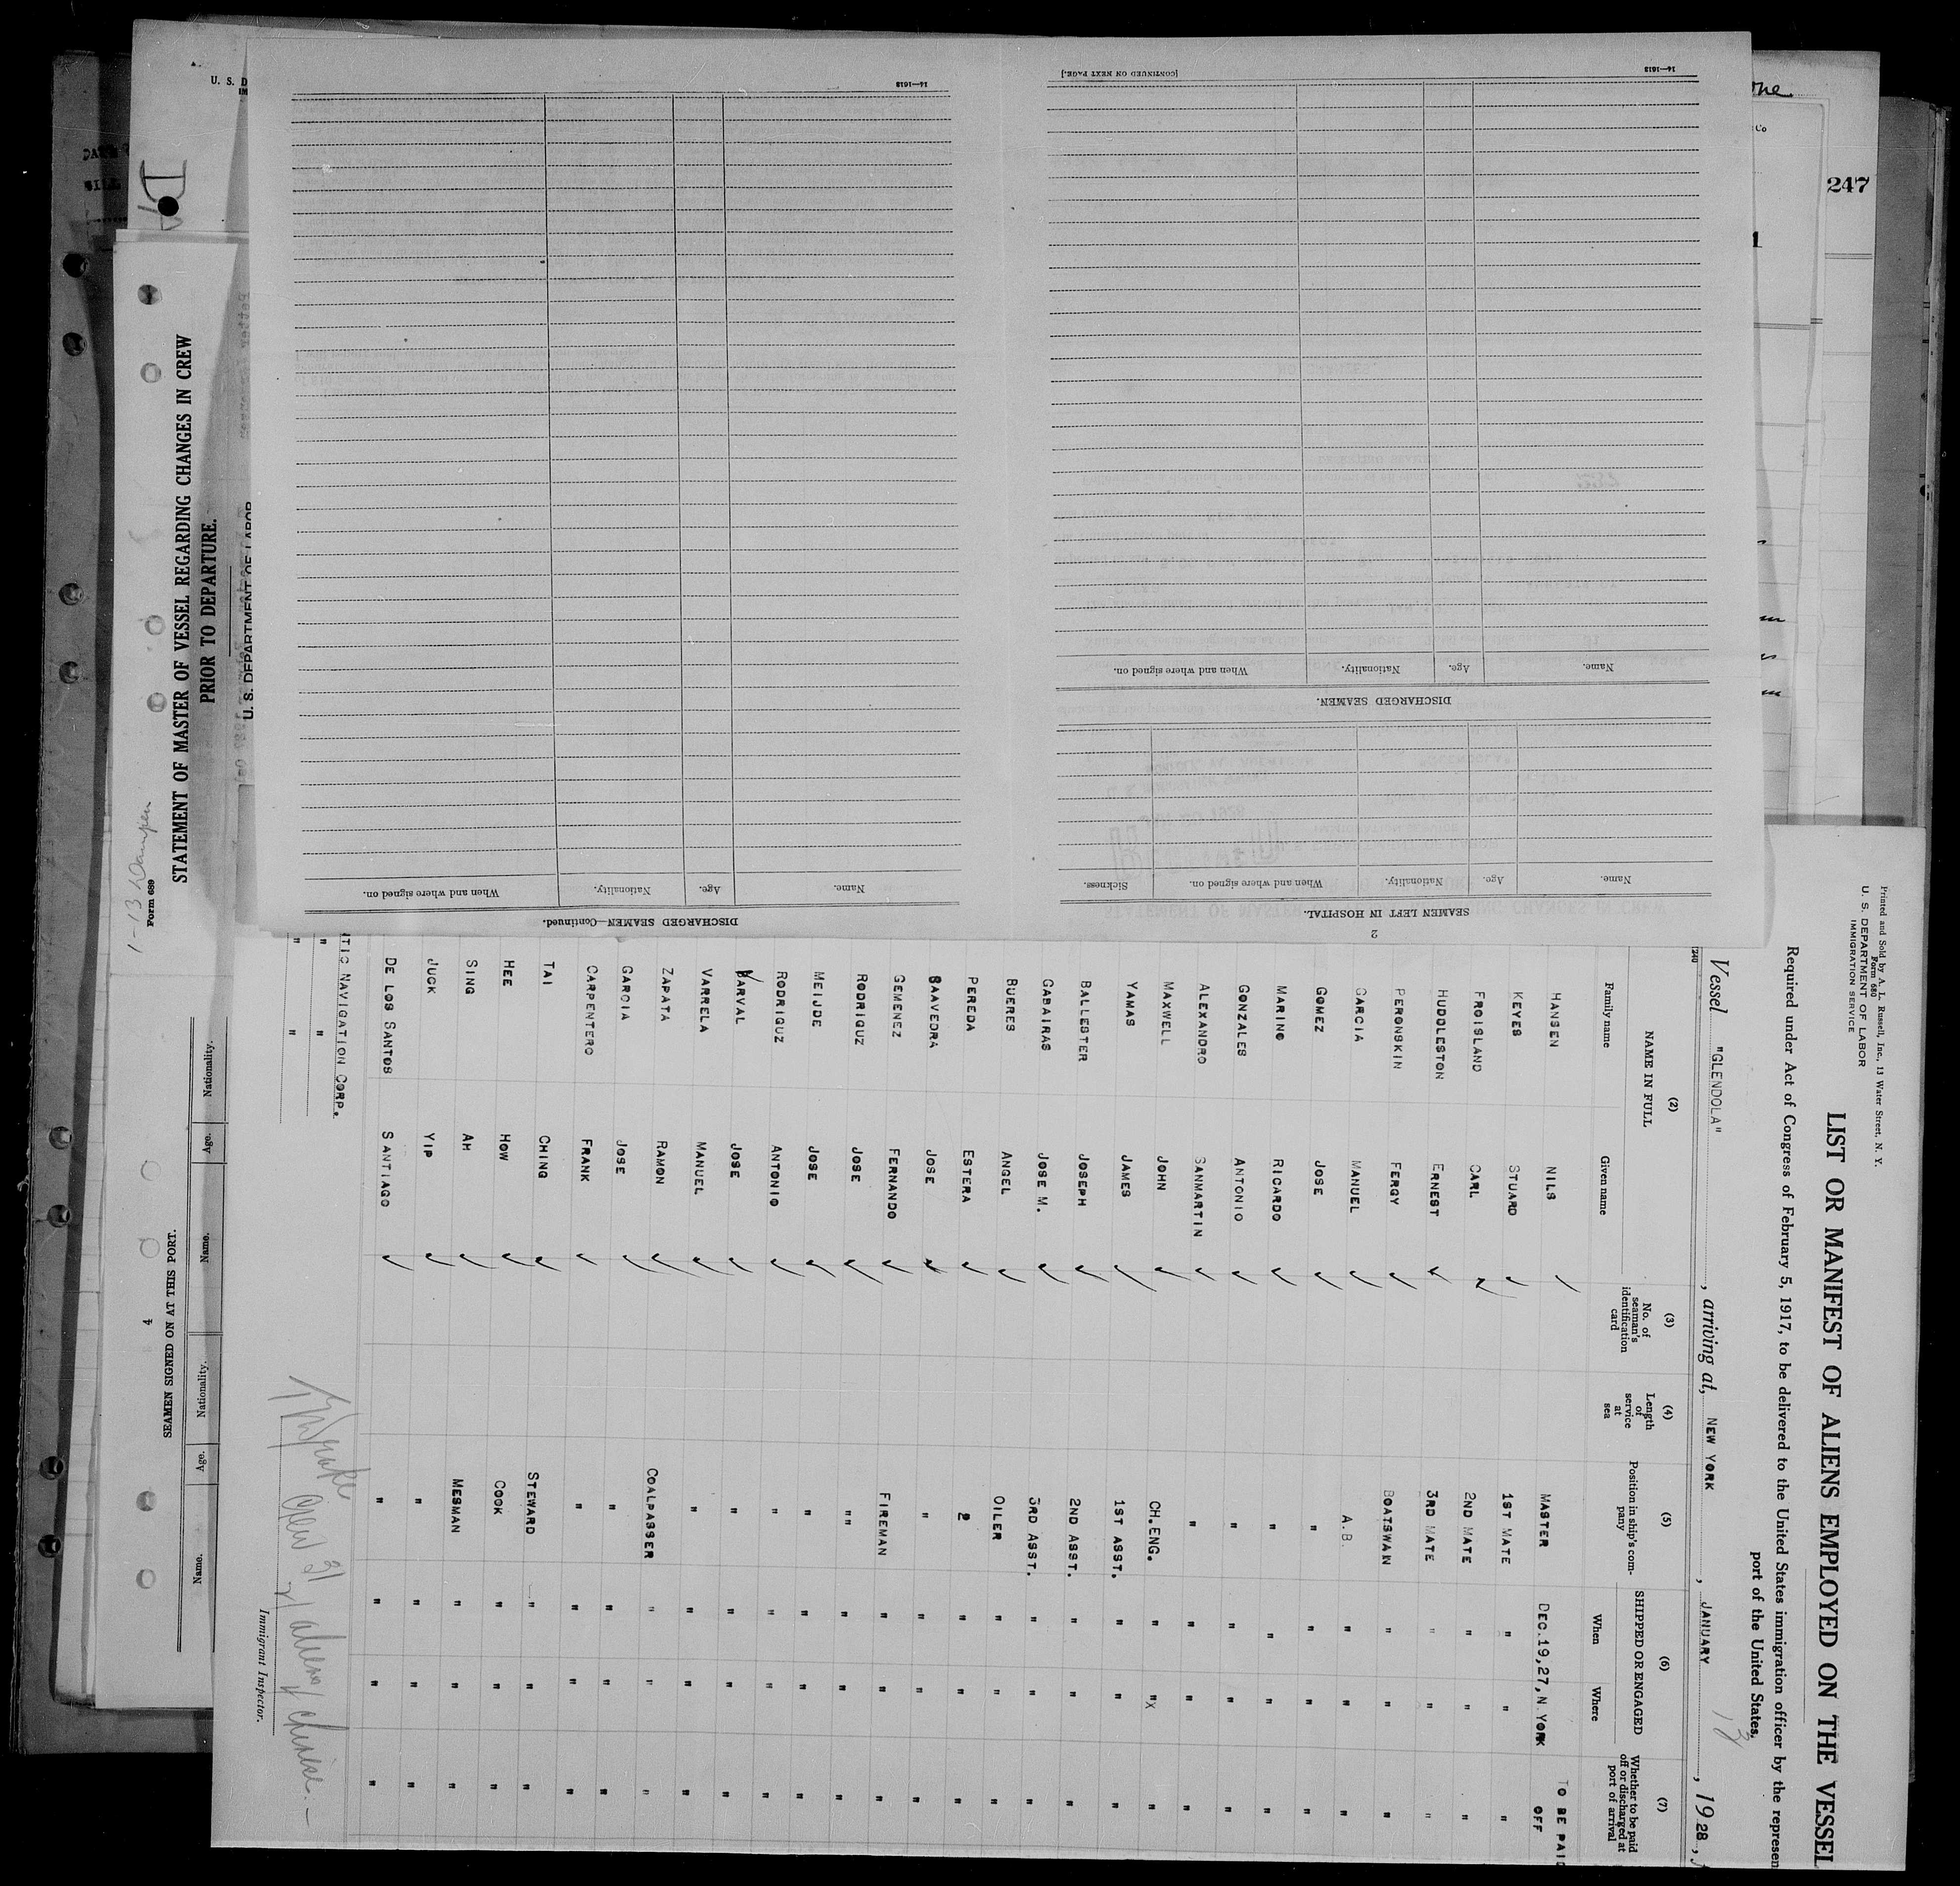 247
U. S. D
IM
Co
1
Printed and Sold by A. L. Russell, Inc., 13 Water Street, N. Y.
Form 680
U. S. DEPARTMENT OF LABOR
IMMIGRATION SERVICE
LIST OR MANIFEST OF ALIENS EMPLOYED ON THE VESSEL
Required under Act of Congress of February 5, 1917, to be delivered to the United States immigration officer by the represen
port of the United States.
Vessel "GLENDOLA", arriving at, NEW YORK, JANUARY 13, 1928, f
(2) (3) (4) (5) (6) (7)
NAME IN FULL No. of seaman's identification card Length of service at sea Position in ship's company SHIPPED OR ENGAGED Whether to be paid off or discharged at port of arrival
Family name Given name When Where
HANSEN NILS MASTER DEC.19,27, N.YORK TO BE PAID OFF
KEYES STUARD 1ST MATE " " "
FROISLAND CARL 2ND MATE " " "
HUDOLESTON ERNEST 3RD MATE " " "
PERONSKIN FERGY BOATSWAN " " "
GARCIA MANUEL A.B. " " "
GOMEZ JOSE " " " "
MARINO RICARDO " " " "
GONZALES ANTONIO " " " "
ALEXANDRO SANMARTIN " " " "
MAXWELL JOHN CH.ENG. " "X "
YAMAS JAMES 1ST ASST. " " "
BALLESTER JOSEPH 2ND ASST. " " "
GABAIRAS JOSE M. 3RD ASST. " " "
BUERES ANGEL OILER " " "
PEREDA ESTERA " " " "
SAAVEDRA JOSE " " " "
GEMENEZ FERNANDO FIREMAN " " "
RODRIQUZ JOSE "" " " "
MEIJDE JOSE " " " "
RODRIQUZ ANTONIO " " " "
VARVAL JOSE " " " "
VARRELA MANUEL " " " "
ZAPATA RAMON COALPASSER " " "
GARCIA JOSE " " " "
CARPENTERO FRANK " " " "
TAI CHING STEWARD " " "
HEE HOW COOK " " "
SING AH MESMAN " " "
JUCK YIP " " " "
DE LOS SANTOS SANTIAGO " " " "
NTIC NAVIGATION CORP.
" "
" "
Crew 31
Immigrant Inspector.
2
SEAMEN LEFT IN HOSPITAL.
Name. Age. Nationality. When and where signed on. Sickness.
DISCHARGED SEAMEN.
Name. Age. Nationality. When and where signed on.
14—1613
[CONTINUED ON NEXT PAGE.]
DISCHARGED SEAMEN—Continued.
Name. Age. Nationality. When and where signed on.
14—1613
Form 689
STATEMENT OF MASTER OF VESSEL REGARDING CHANGES IN CREW
PRIOR TO DEPARTURE.
U. S. DEPARTMENT OF LABOR
4
SEAMEN SIGNED ON AT THIS PORT.
Name. Age. Nationality. Name. Age. Nationality.